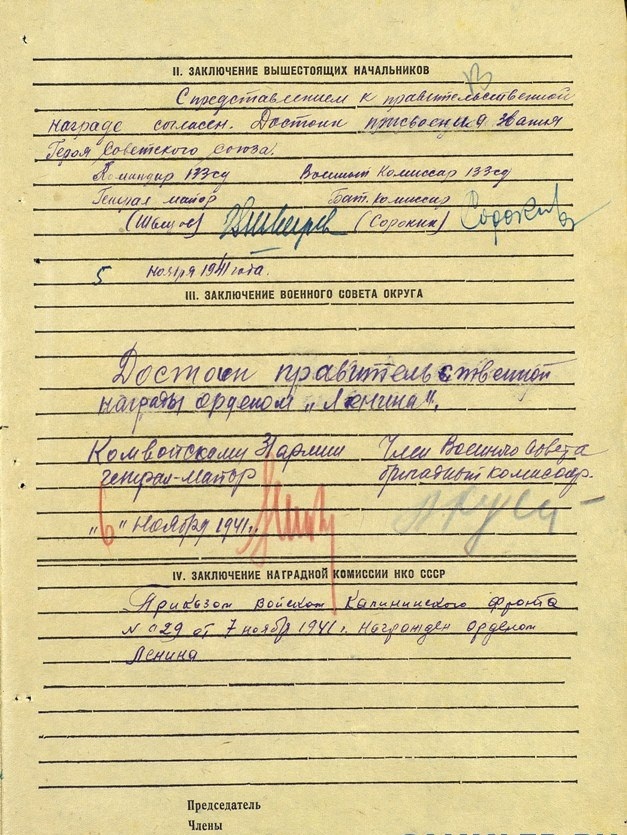 II. ЗАКЛЮЧЕНИЕ ВЫШЕСТОЯЩИХ НАЧАЛЬНИКОВ
С представлением к правительственной
награде согласен. Достоин присвоения звания
Героя Советского союза.
Командир 133сд Военный Комиссар 133сд
Генерал майор Бат. комиссар
(Швецов) (Сорокин) Сорокин
5 ноября 1941 года.
III. ЗАКЛЮЧЕНИЕ ВОЕННОГО СОВЕТА ОКРУГА
Достоин правительственной
награды орденом „Ленина".
Комвойсками 31 армии Член Военного Совета
генерал-майор бригадный комиссар.
„6" ноября 1941 г.
IV. ЗАКЛЮЧЕНИЕ НАГРАДНОЙ КОМИССИИ НКО СССР
Приказом войскам Калининского фронта
№ 029 от 7 ноября 1941 г. награжден орденом
Ленина
Председатель
Члены